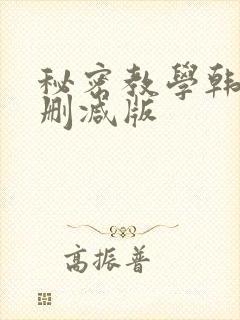 秘密教學韩
删减版
高振普